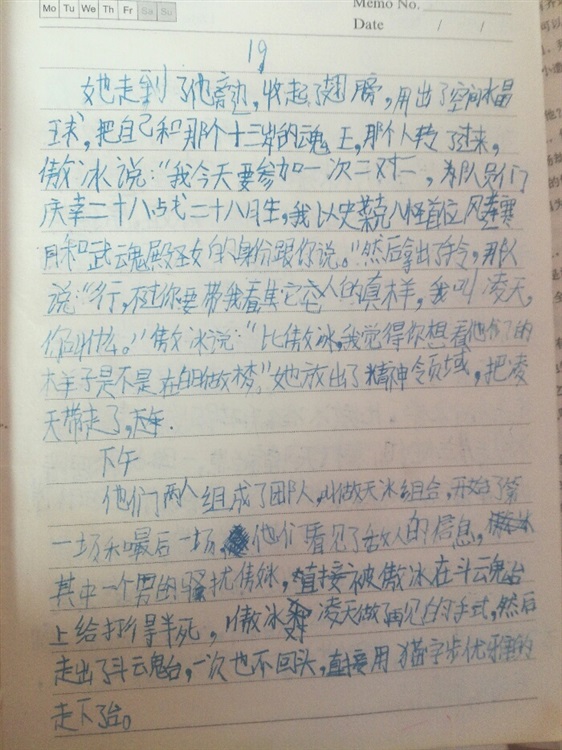 Mo Tu We Th Fr Sa Su
Memo No.
Date / /
19
她走到了他旁边,收起了翅膀,用出了空间水晶
球,把自己和那个十三岁的魂王,那个人转了过来,
傲冰说:“我今天要参加一次二对二,为队员们
庆幸二十八占戈二十八月生,我以史莱克八怪首位风
月和武魂殿圣女的身份跟你说。”然后拿出了令,那人
说:“行,不过你要带我看其它人的真样,我叫凌天,
你叫什么。”傲冰说:“比傲冰,我觉得你想看他们的
样子是不是在白日做梦,”她放出了精神领域,把凌
天带走了,
下午
他们两人组成了团队,叫做天冰组合,开始了第
一场和最后一场,他们看见了敌人的信息,
其中一个男的骚扰傲冰,直接被傲冰在斗魂台
上给打得半死,傲冰 凌天做了再见的手式,然后
走出了斗魂台,一次也不回头,直接用猫字步优雅的
走下台。